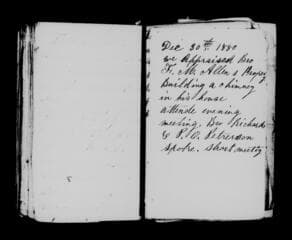 Dec 30th 1880
we Appraised Bro
F. M. Allens
Building a chimney
in his house
attende evening
meeting, Bro Richards
& P. O. Peterson
spoke. short meeting